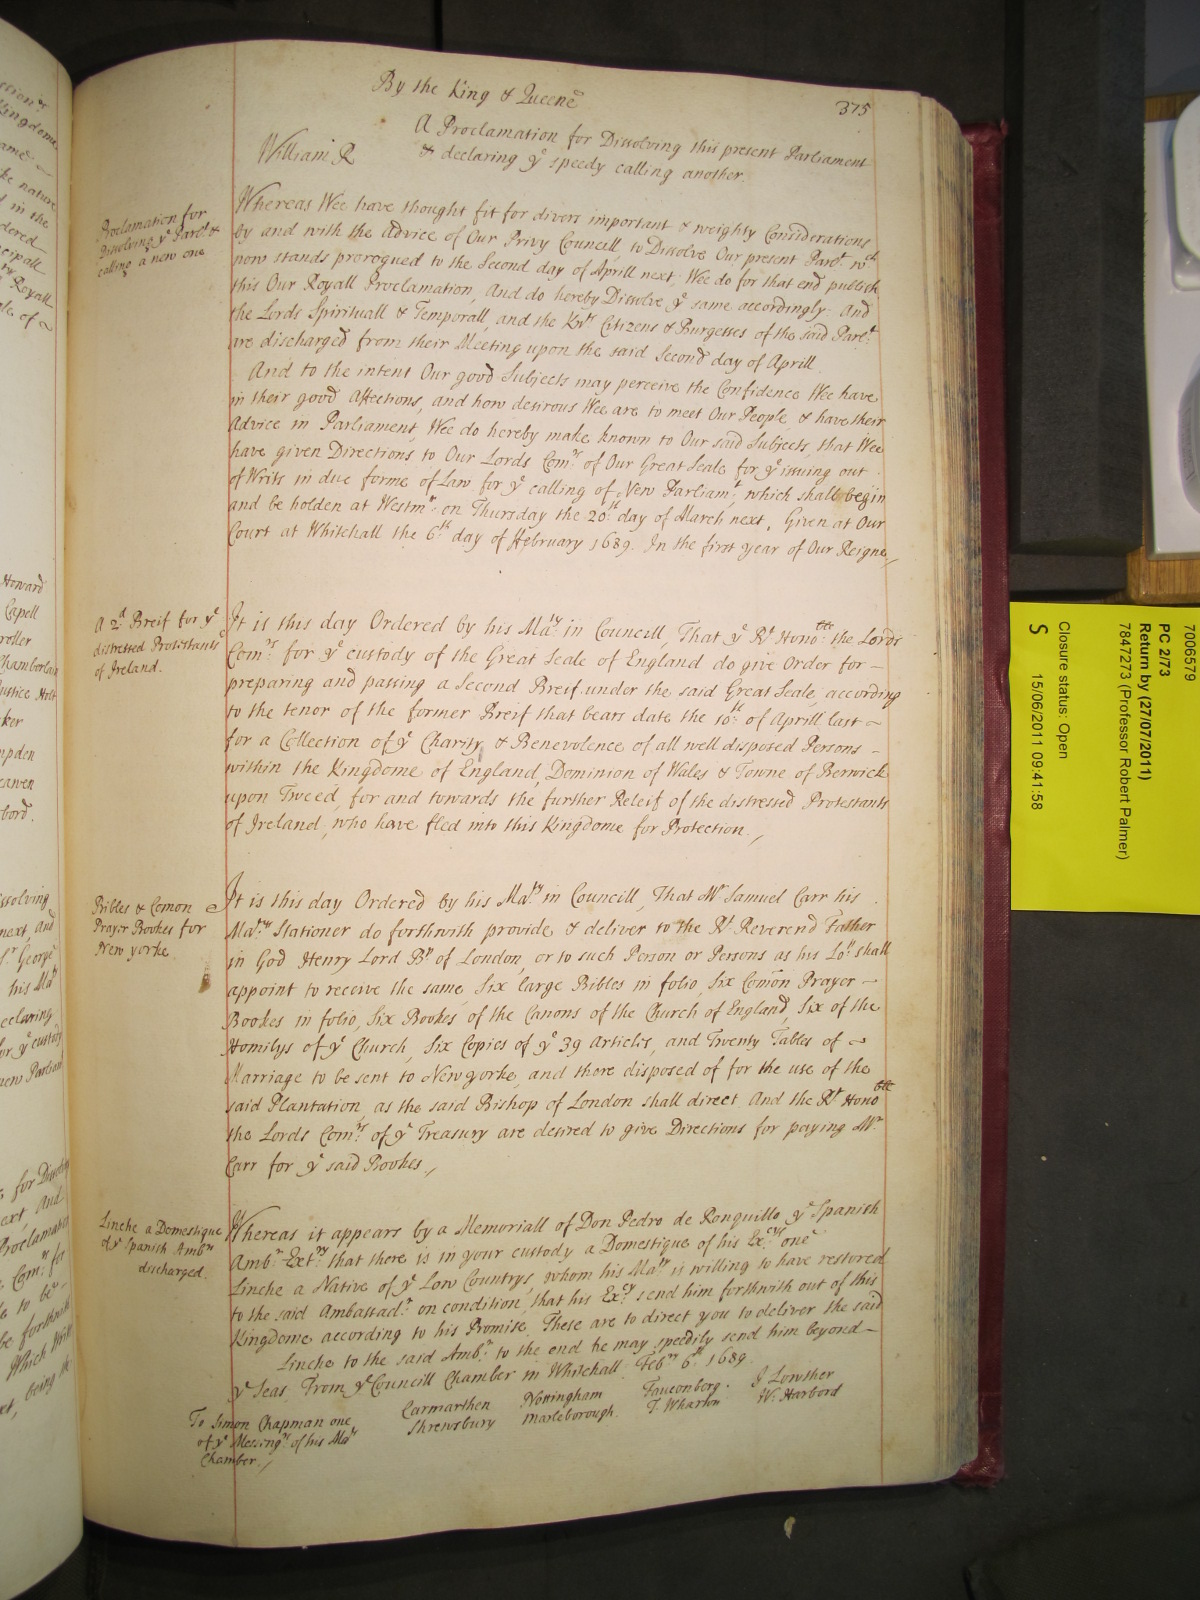 By the King & Queene
375
A Proclamation for Dissolving this present Parliament
& declaring yᵉ speedy calling another.
William R
Proclamation for
Dissolving yᵉ Parlᵗ &
calling a new one
Whereas Wee have thought fit for divers important & weighty Considerations
by and with the Advice of Our Privy Councill, to Dissolve Our present Parlᵗ wᶜʰ
now stands prorogued to the Second day of Aprill next; Wee do for that end publish
this Our Royall Proclamation, And do hereby Dissolve yᵉ same accordingly: And
the Lords Spirituall & Temporall, and the Knᵗˢ Citizens & Burgesses of the said Parlᵗ
are discharged from their Meeting upon the said Second day of Aprill.
And to the intent Our good Subjects may perceive the Confidence Wee have
in their good Affections, and how desirous Wee are to meet Our People, & have their
Advice in Parliament, Wee do hereby make known to Our said Subjects, that Wee
have given Directions to Our Lords Comʳˢ of Our Great Seale for yᵉ issuing out
of Writs in due forme of Law for yᵉ calling of New Parliamᵗ, which shall begin
and be holden at Westmʳ on Thursday the 20ᵗʰ day of March next. Given at Our
Court at Whitehall the 6ᵗʰ day of ffebruary 1689. In the first year of Our Reigne,
A 2ᵈ Breif for yᵉ
distressed Protestants
of Ireland.
It is this day Ordered by his Maᵗʸ in Councill, That yᵉ Rᵗ Honoᵇˡᵉ the Lords
Comʳˢ for yᵉ custody of the Great Seale of England do give Order for
preparing and passing a Second Breif under the said Great Seale, according
to the tenor of the former Breif that bears date the 10ᵗʰ of Aprill last
for a Collection of yᵉ Charity & Benevolence of all well disposed Persons
within the Kingdome of England, Dominion of Wales & Towne of Berwick
upon Tweed, for and towards the further Releif of the distressed Protestants
of Ireland, who have fled into this Kingdome for Protection.
Bibles & Comon
Prayer Bookes for
New yorke
It is this day Ordered by his Maᵗʸ in Councill, That Mʳ Samuel Carr his
Maᵗʸˢ Stationer do forthwith provide & deliver to the Rᵗ Reverend Father
in God Henry Lord Bᵖ of London, or to such Person or Persons as his Loᵖ shall
appoint to receive the same, Six large Bibles in folio, Six Comōn Prayer
Bookes in folio, Six Bookes of the Canons of the Church of England, Six of the
Homilys of yᵉ Church, Six Copies of yᵉ 39 Articles, and Twenty Tables of
Marriage to be sent to New yorke, and there disposed of for the use of the
said Plantation, as the said Bishop of London shall direct And the Rᵗ Honoᵇˡᵉ
the Lords Comʳˢ of yᵉ Treasury are desired to give Directions for paying Mʳ
Carr for yᵉ said Bookes.
Linche a Domestique
of yᵉ Spanish Ambʳ
discharged.
Whereas it appears by a Memoriall of Don Pedro de Ronquillo yᵉ Spanish
Ambʳ Extʳʸ that there is in your custody a Domestique of his Exᶜʸ one
Linche a Native of yᵉ Low Countrys, whom his Maᵗʸ is willing to have restored
to the said Ambassadʳ on condition, that his Exᶜʸ send him forthwith out of this
Kingdome according to his Promise, These are to direct you to deliver the said
Linche to the said Ambʳ to the end he may speedily send him beyond
yᵉ Seas, From yᵉ Councill Chamber in Whitehall Febʳʸ 6ᵗʰ 1689.
Carmarthen Nottingham Fauconberg. J Lowther
Shrewsbury Marleborough. T. Wharton W. Harbord
To Simon Chapman one
of yᵉ Messingʳˢ of his Maᵗʸ
Chamber.
7006579
PC 2/73
Return by (27/07/2011)
7847273 (Professor Robert Palmer)
Closure status: Open
S 15/06/2011 09:41:58